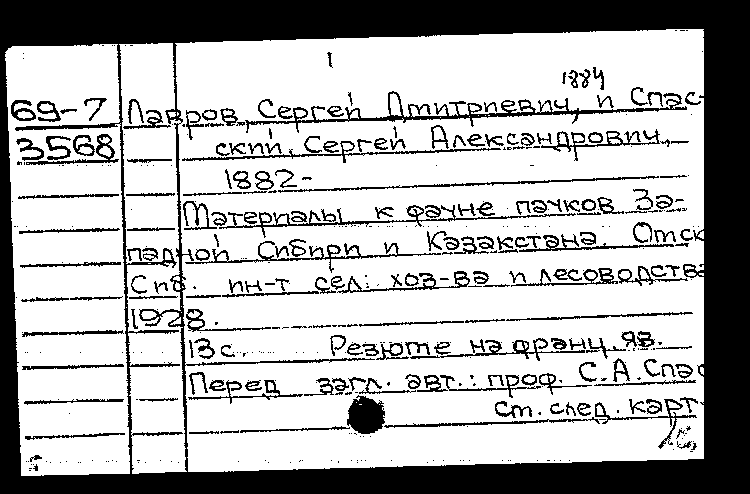 1
1884
69-7 Лавров, Сергей Дмитриевич, и Спас-
3568 ский, Сергей Александрович,
1882-
Материалы к фауне пауков За-
падной Сибири и Казакстана. Омск
Сиб. ин-т сел. хоз-ва и лесоводства
1928.
13 с. Резюме на франц. яз.
Перед загл. авт.: проф. С.А. Спас
См. след. карт